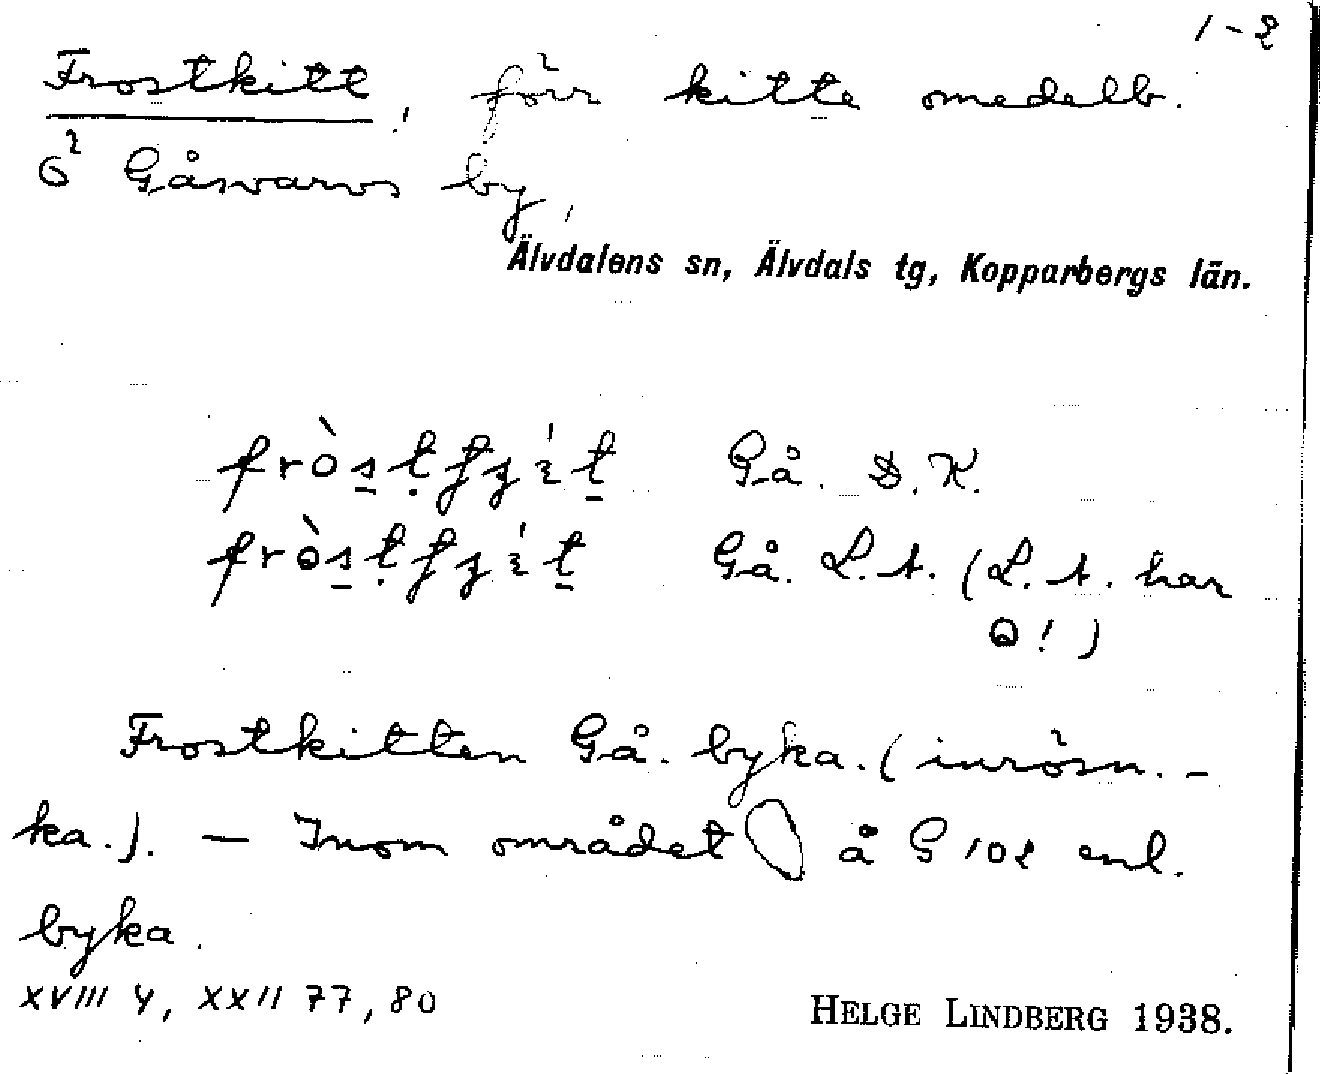 1-2
Frostkitt, förr kitte omedelb.
ö Gåsvarvs by,
Älvdalens sn, Älvdals tg, Kopparbergs län.
Gå. D.K.
Gå. L.A. (L.A. har
!)
Frostkitten Gå. byka. (inrösn.-
ka.). — Inom området å G 102 enl.
byka.
XVIII 4, XXII 77, 80
HELGE LINDBERG 1938.